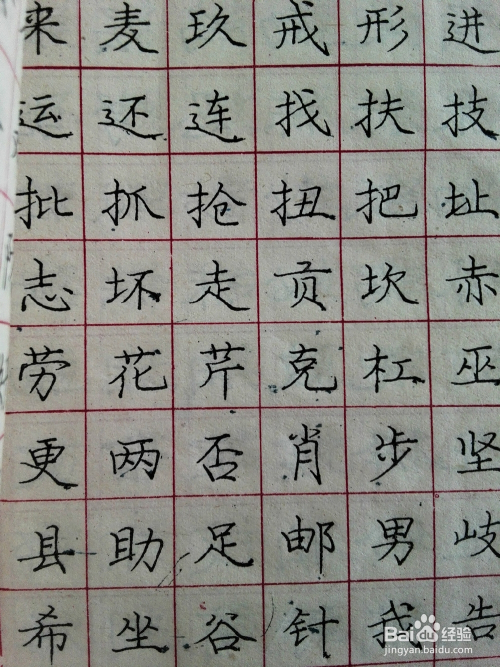 来麦玖戒形进
运还连找扶技
批抓抢扭把址
志坏走贡坎赤
劳花芹克杠巫
更两否肖步坚
县助足邮男岐
希坐谷针我告
Bai 经验
jingyan.baidu.com